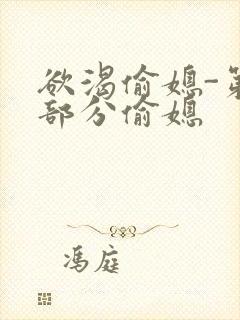 欲渴偷媳-第
部分偷媳
冯庭